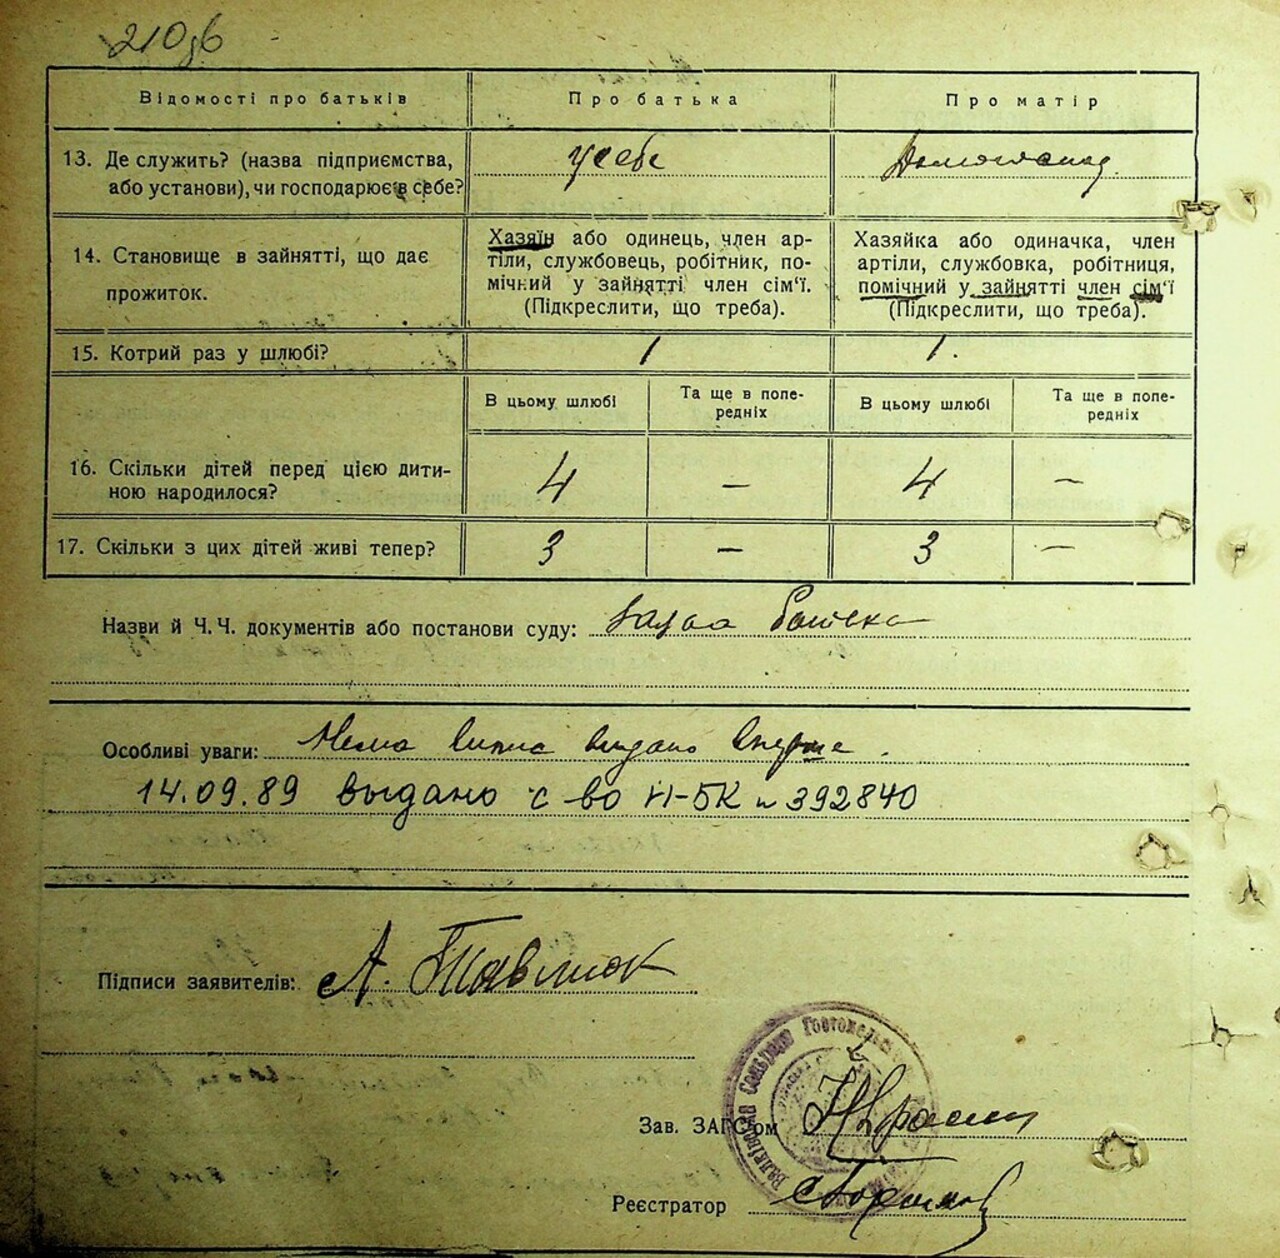 210зв
Відомості про батьків
Про батька
Про матір
13. Де служить? (назва підприємства, або установи), чи господарює в себе?
у себе
14. Становище в зайнятті, що дає прожиток.
Хазяїн або одинець, член ар-
тіли, службовець, робітник, по-
мічний у зайнятті член сім'ї.
(Підкреслити, що треба).
Хазяйка або одиначка, член
артіли, службовка, робітниця,
помічний у зайнятті член сім'ї
(Підкреслити, що треба).
15. Котрий раз у шлюбі?
1
1.
В цьому шлюбі
Та ще в попе-
редніх
В цьому шлюбі
Та ще в попе-
редніх
16. Скільки дітей перед цією дити-
ною народилося?
4
–
4
–
17. Скільки з цих дітей живі тепер?
3
–
3
–
Назви й Ч.Ч. документів або постанови суду: заява
Особливі уваги: Нема видано вперше.
14.09.89 выдано с-во II-БК № 392840
Підписи заявителів: А.
Гостомельск
Зав. ЗАГС'ом
Реєстратор